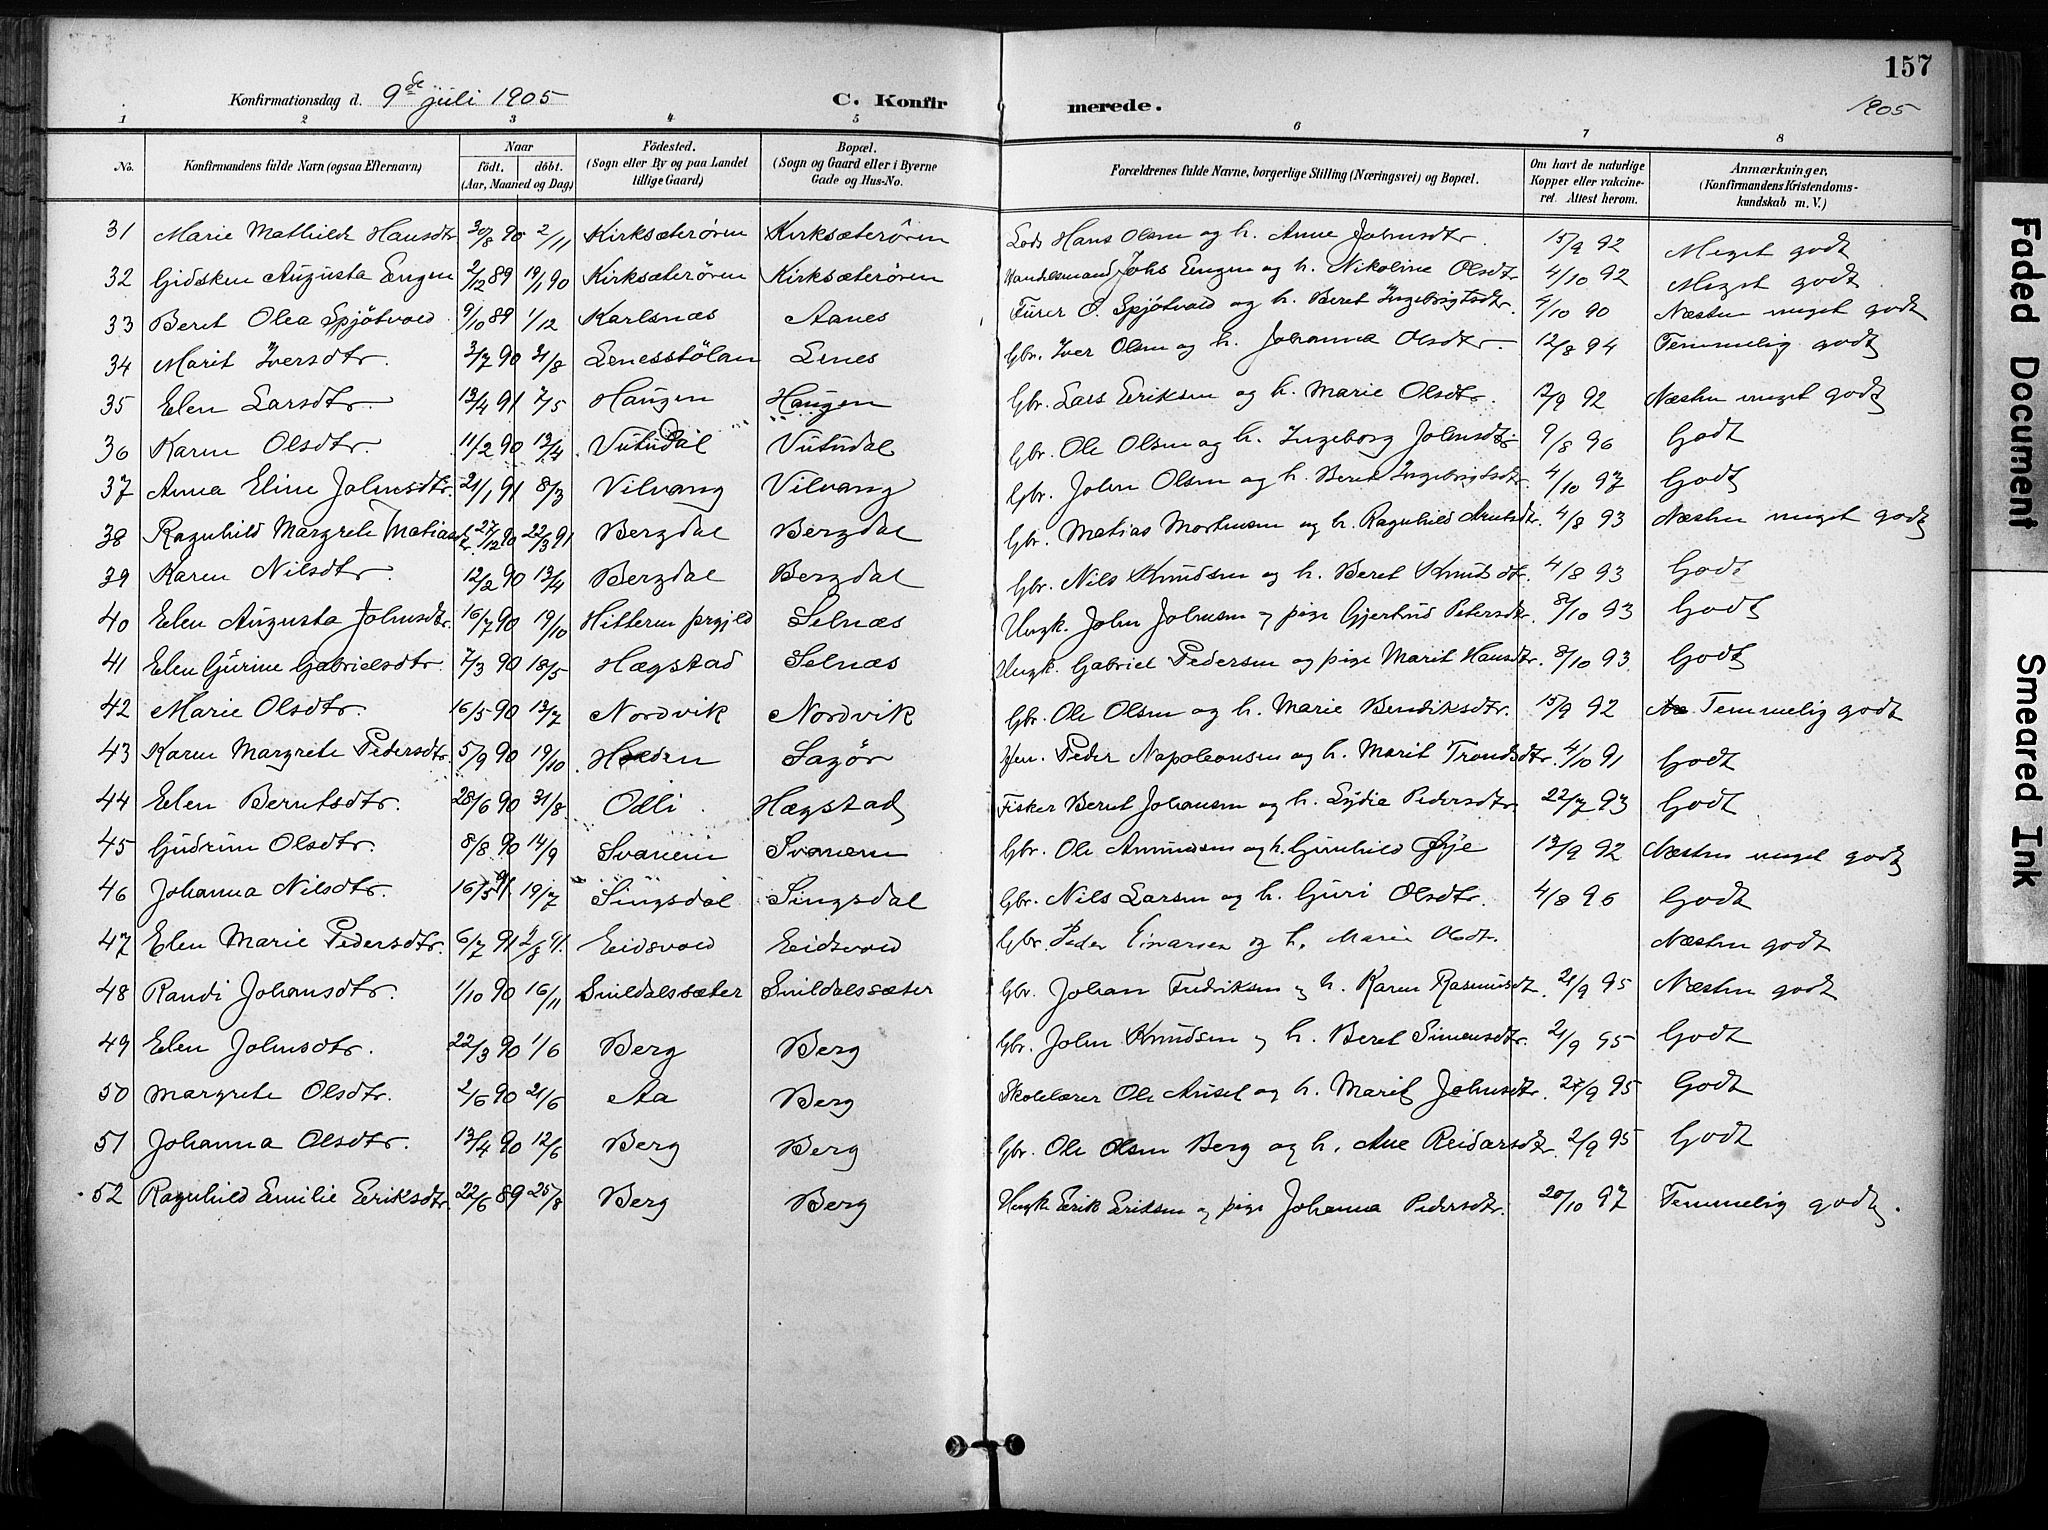 157
Konfirmationsdag d. 9de juli 1905 C. Konfirmerede. 1905
1 2 3 4 5 6 7 8
No. Konfirmandens fulde Navn (ogsaa Efternavn) Naar født. døbt. (Aar, Maaned og Dag) Fødested. (Sogn eller By og paa Landet tillige Gaard) Bopæl. (Sogn og Gaard eller i Byerne Gade og Hus-No. Forældrenes fulde Navne, borgerlige Stilling (Næringsvei) og Bopæl. Om havt de naturlige Kopper eller vakcineret. Attest herom. Anmærkninger, (Konfirmandens Kristendomskundskab m. V.)
31 Marie Mathilde Hansdtr 30/8 90 2/11 Kirksæterøren Kirksæterøren Lods Hans Olsen og h. Anne Johnsdtr. 15/9 92 Meget godt
32 Gidsken Augusta Engen 2/12 89 19/1 90 Kirksæterøren Kirksæterøren Handelsmand Johs Engen og h. Nikoline Olsdtr 4/10 92 Meget godt
33 Beret Olea Spjøtvold 9/10 89 1/12 Karlsnæs Aanes Furer O. Spjøtvold og h. Beret Ingebrigtsdtr. 4/10 90 Næsten meget godt
34 Marit Iversdtr. 3/7 90 31/8 Lenesstølan Lenes Gbr. Iver Olsen og h. Johanna Olsdtr. 12/8 94 Temmelig godt
35 Elen Larsdtr. 13/4 91 7/5 Haugen Haugen Gbr. Lars Eriksen og h. Marie Olsdtr. 12/9 92 Næsten meget godt
36 Karen Olsdtr. 11/2 90 13/4 Vutudal Vutudal Gbr. Ole Olsen og h. Ingeborg Johnsdtr. 9/8 96 Godt
37 Anna Eline Johnsdtr. 21/1 91 8/3 Vilvang Vilvang Gbr. John Olsen og h. Beret Ingebrigtsdtr. 4/10 97 Godt
38 Ragnhild Margrete Matiasdtr. 27/12 90 22/3 91 Bergdal Bergdal Gbr. Matias Mortensen og h. Ragnhild Arntsdtr. 4/8 93 Næsten meget godt
39 Karen Nilsdtr. 12/2 90 13/4 Bergdal Bergdal Gbr. Nils Knudsen og h. Beret Knutsdtr. 4/8 93 Godt
40 Elen Augusta Johnsdtr. 16/7 90 19/10 Hitteren prgjld Selnæs Ungk. John Johnsen og pige Gjertrud Petersdtr. 8/10 93 Godt
41 Elen Gurine Gabrielsdtr. 7/3 90 18/5 Hægstad Selnæs Ungk. Gabriel Pedersen og pige Marit Hansdtr. 8/10 93 Godt
42 Marie Olsdtr. 16/5 90 13/7 Nordvik Nordvik Gbr. Ole Olsen og h. Marie Bendiksdtr. 15/9 92 Næ Temmelig godt
43 Karen Margrete Pedersdtr. 5/9 90 19/10 Holden Sagør Peder Napoleonsen og h. Marit Trondsdtr. 4/10 91 Godt
44 Elen Berntsdtr. 28/6 90 31/8 Odli Hægstad Fisker Bernt Johansen og h. Lydie Pedersdtr. 22/7 93 Godt
45 Gudrun Olsdtr. 8/8 90 14/9 Svanem Svanem Gbr. Ole Amundsen og h. Gunhild Øye 13/9 92 Næsten meget godt
46 Johanna Nilsdtr. 16/5 91 19/7 Singsdal Singsdal Gbr. Nils Larsen og h. Guri Olsdtr. 4/8 96 Godt
47 Elen Marie Pedersdtr. 6/7 91 2/8 91. Eidsvold Eidsvold Gbr. Peder Einarsen og h. Marie Olsdt. Næsten godt
48 Randi Johansdtr. 1/10 90 16/11 Snildalssæter Snildalssæter Gbr. Johan Fredriksen og h. Karen Rasmusdt. 21/9 95 Næsten godt
49 Elen Johnsdtr. 22/3 90 1/6 Berg Berg Gbr. John Knudsen og h. Beret Simensdtr. 21/9 95 Godt
50 Margrete Olsdtr. 2/6 90 21/6 Aa Berg Skolelærer Ole Ausel og h. Marit Johnsdtr. 27/9 95 Godt
51 Johanna Olsdtr. 13/4 90 12/6 Berg Berg Gbr. Ole Olsen Berg og h. Ane Reidarsdtr. 2/9 95 Godt
52 Ragnhild Emilie Eriksdtr. 22/6 89 25/8 Berg Berg Ungk Erik Eriksen og pige Johanna Pedersdtr. 20/10 97 Temmelig godt.
Faded Document
Smeared Ink